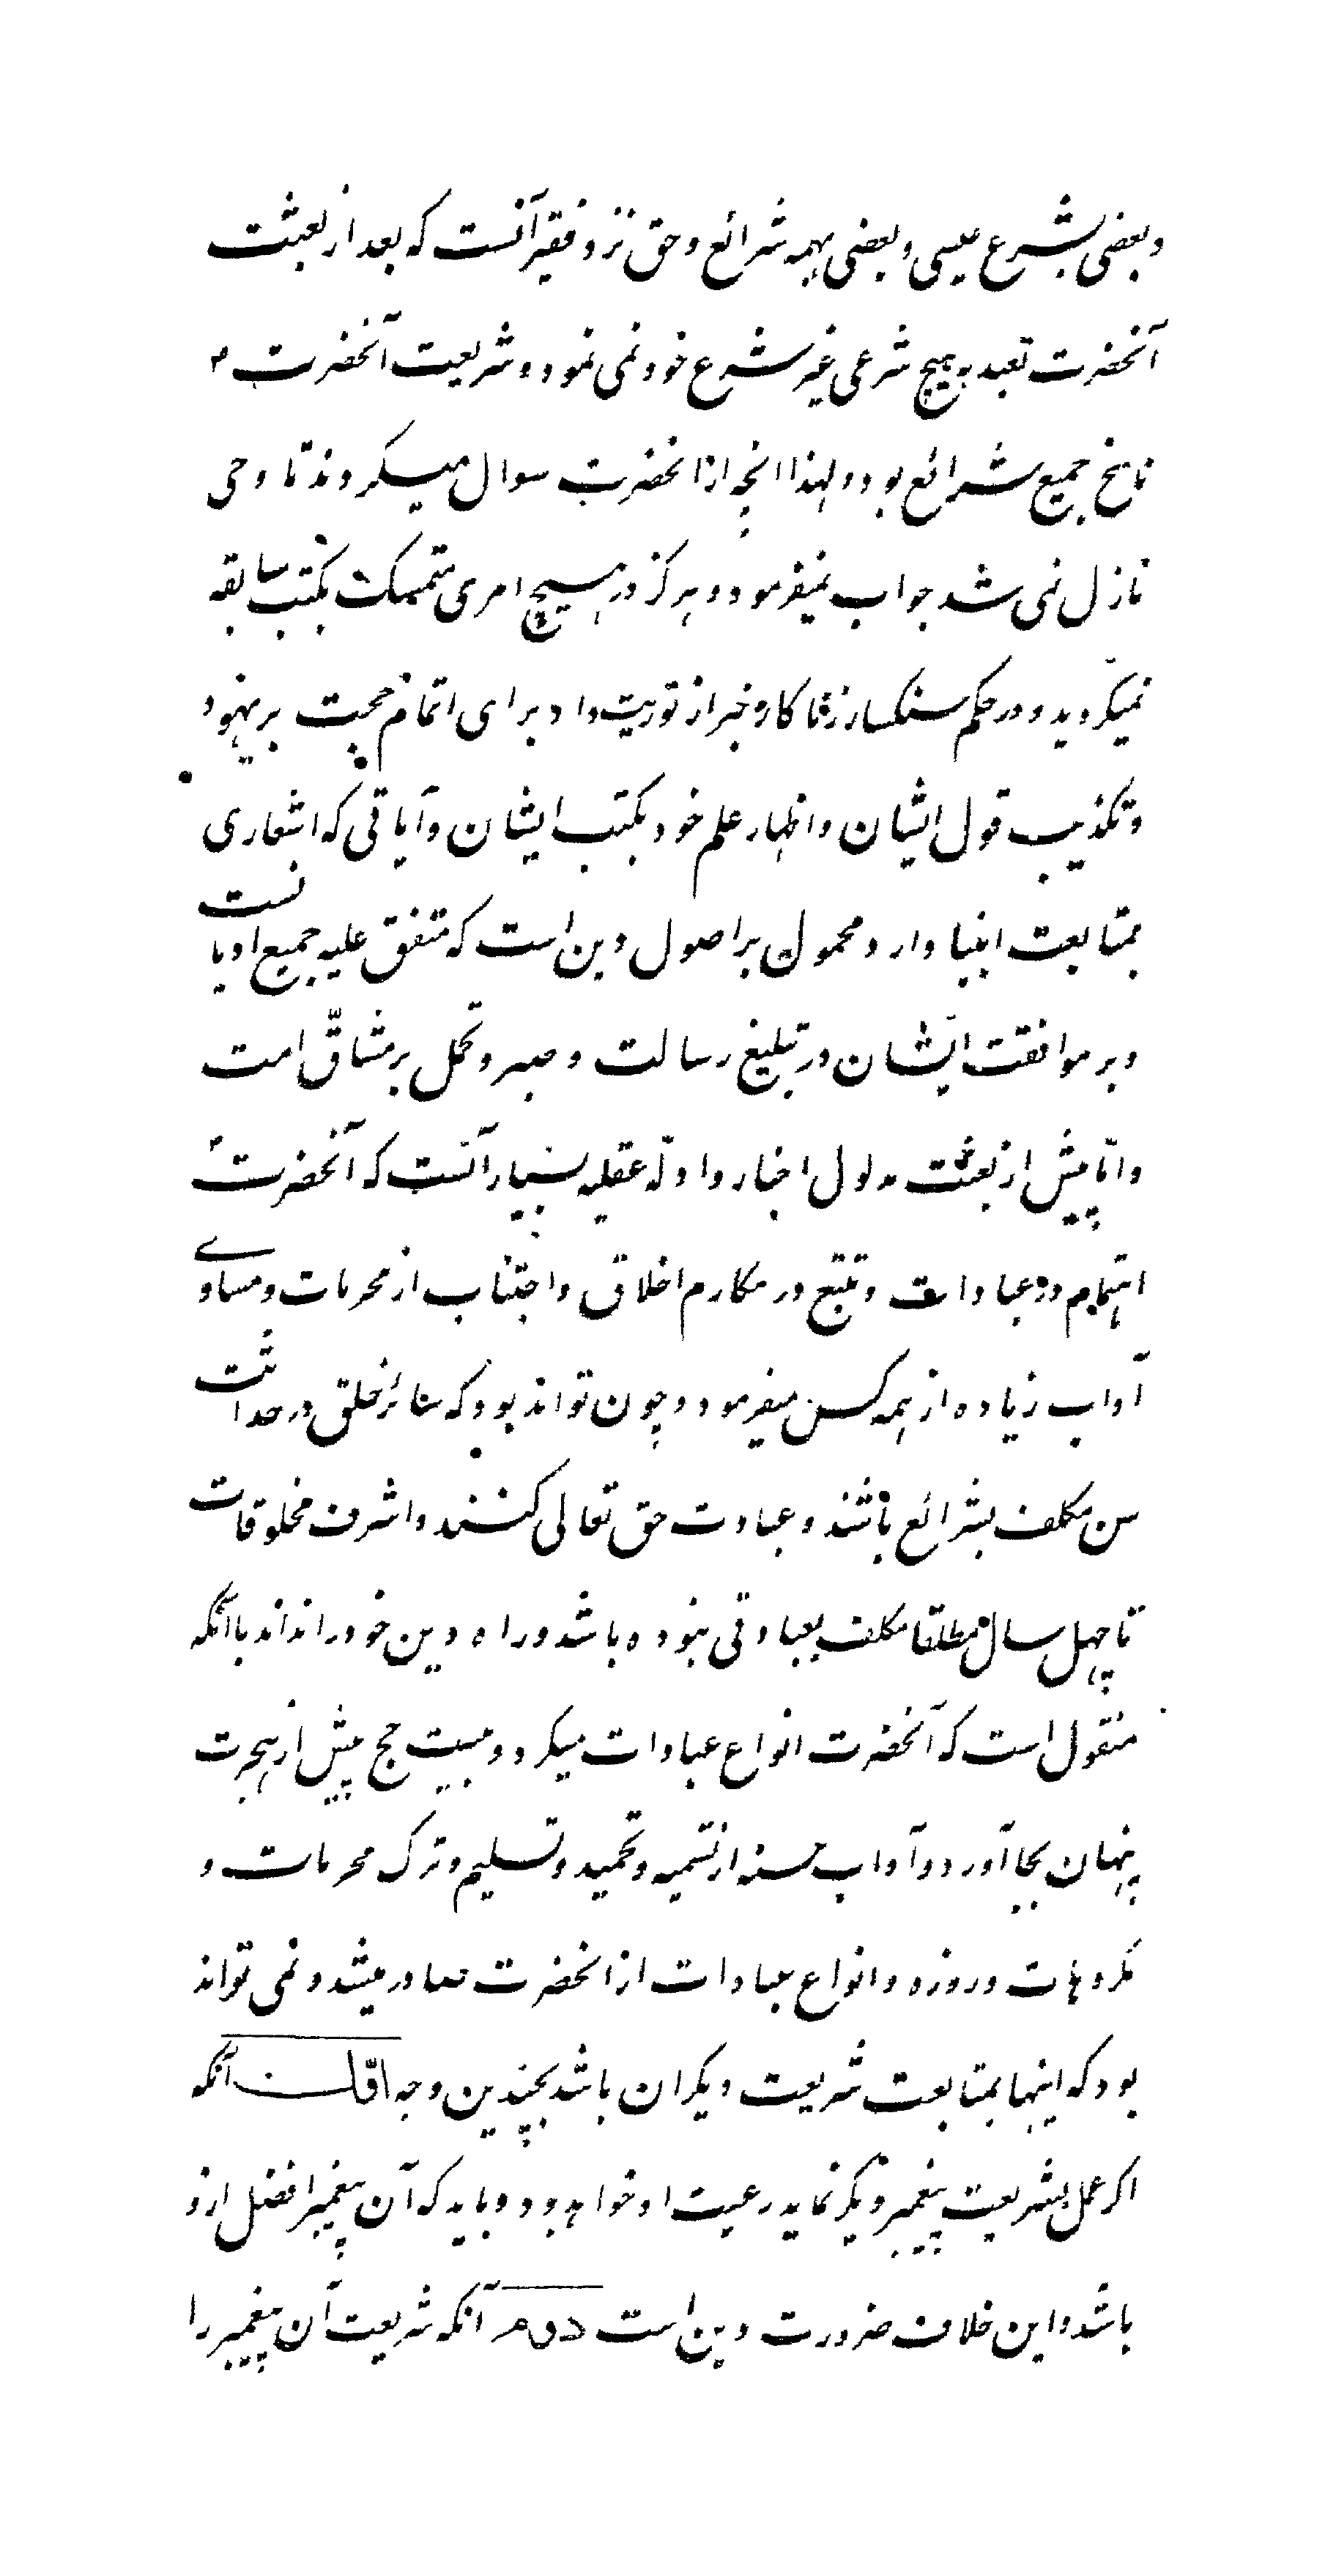 وبعضی بشرع عیسی وبعضی بهمه شرائع وحق نزد فقیر آنست که بعد از بعثت
آنحضرت تعبد به هیچ شرعی غیر شرع خود نمی نمود و شریعت آنحضرت ص
ناسخ جمیع شرائع بود ولهذا انچه ازانحضرت سوال میکردند تا وحی
نازل نمی شد جواب نمیفرمود و هرگز در هیچ امری متمسک بکتب سابقه
نمیگردید و در حکم سنگسار زناکار خبر از توریت داد برای اتمام حجت بر یهود
وتکذیب قول ایشان واظهار علم خود بکتب ایشان وآیاتی که اشعاری
بمتابعت انبیا دارد محمول بر اصول دین است که متفق علیه جمیع ادیانست
وبر موافقت ایشان در تبلیغ رسالت وصبر وتحمل بر مشاقّ امت
وامّا پیش از بعثت مدلول اخبار وادلّه عقلیه بسیار آنست که آنحضرت ص
اهتمام در عبادات وتتبع در مکارم اخلاق واجتناب از محرمات ومساوے
آداب زیاده از همه کس میفرمود وچون تواند بود که سائر خلق در حداثت
سن مکلف بشرائع باشند وعبادت حق تعالی کنند واشرف مخلوقات
تا چهل سال مطلقا مکلف بعبادتی نبوده باشد وراه دین خود را نداند باآنکه
منقول است که آنحضرت انواع عبادات میکرد وبیست حج پیش از هجرت
پنهان بجا آورد وآداب حسنه از تسمیه وتحمید وتسلیم وترک محرمات و
مکروهات وروزه وانواع عبادات ازانحضرت صادر میشد ونمی تواند
بود که اینها بمتابعت شریعت دیگران باشد بچندین وجه اوّل آنکه
اگر عمل بشریعت پیغمبر دیگر نماید رعیت او خواهد بود و باید که آن پیغمبر افضل ازو
باشد واین خلاف ضرورت دین است دوم آنکه شریعت آن پیغمبر را